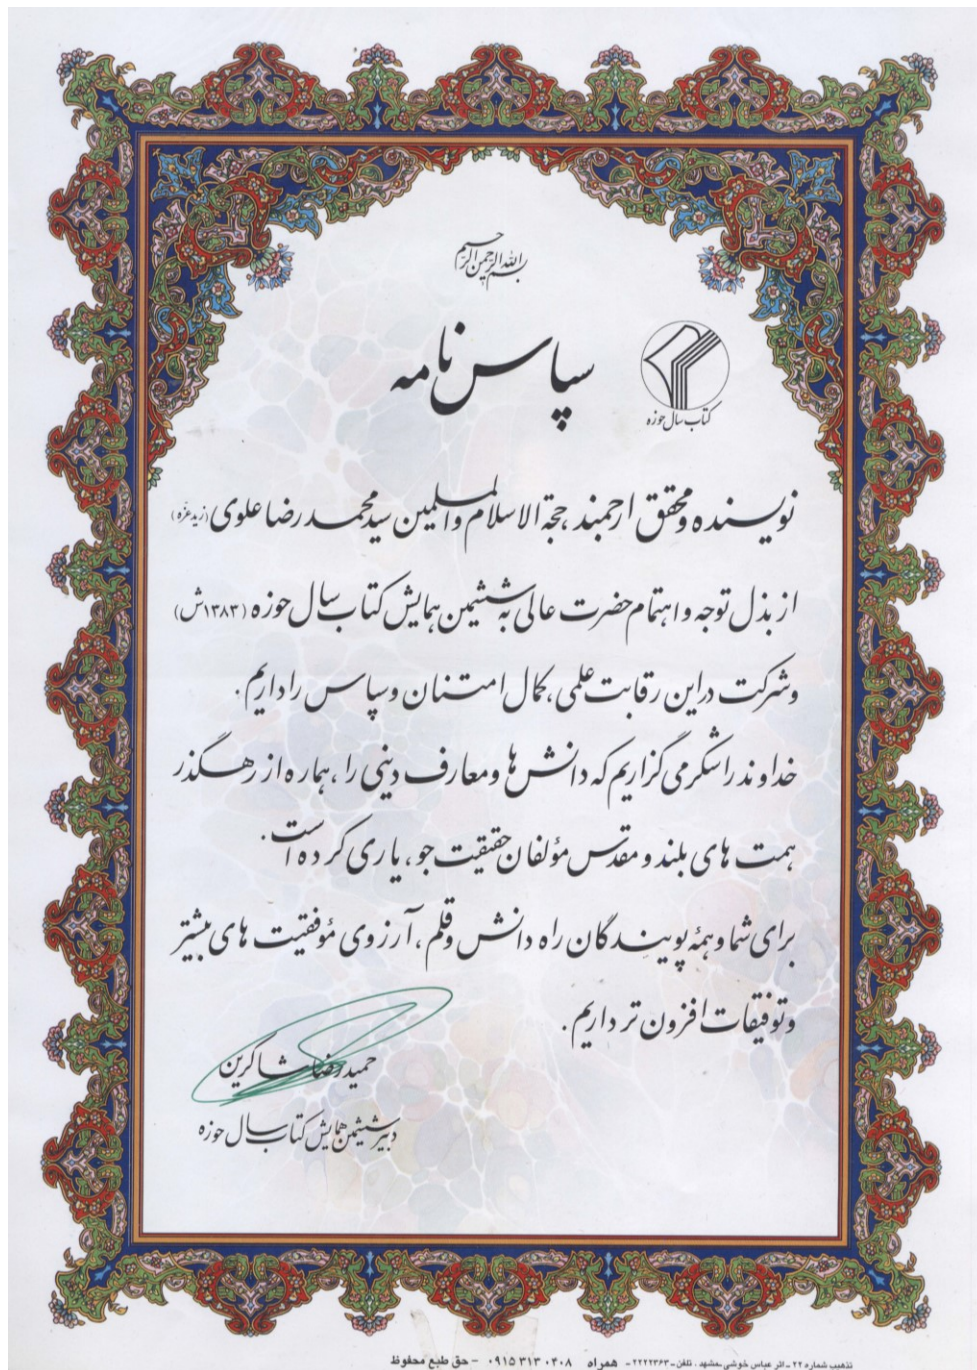 بسم الله الرحمن الرحیم
سپاس نامه
کتاب سال حوزه
نویسنده و محقق ارجمند، حجة الاسلام والمسلمین سید محمد رضا علوی (زید عزّه)
از بذل توجه و اهتمام حضرت عالی به ششمین همایش کتاب سال حوزه (۱۳۸۳ش)
و شرکت در این رقابت علمی، کمال امتنان و سپاس را داریم.
خداوند را شکر می گزاریم که دانش ها و معارف دینی را، هماره از رهگذر
همت های بلند و مقدس مؤلفان حقیقت جو، یاری کرده است.
برای شما و همهٔ پویندگان راه دانش و قلم، آرزوی مؤفقیت های بیشتر
و توفیقات افزون تر داریم.
حمیدرضا شاکرین
دبیر ششمین همایش کتاب سال حوزه
تذهیب شماره ۲۲ ـ اثر عباس خوشی ـ مشهد ، تلفن ـ ۲۲۲۲۳۶۳ - همراه ۰۹۱۵ ۳۱۳ ۰۴۰۸ - حق طبع محفوظ